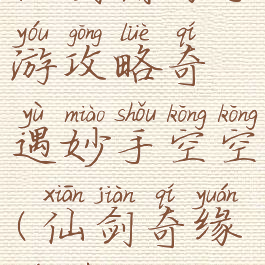 yóu gōng lüè qí
游攻略奇
yù miào shǒu kōng kōng
遇妙手空空
xiān jiàn qí yuán
(仙剑奇缘